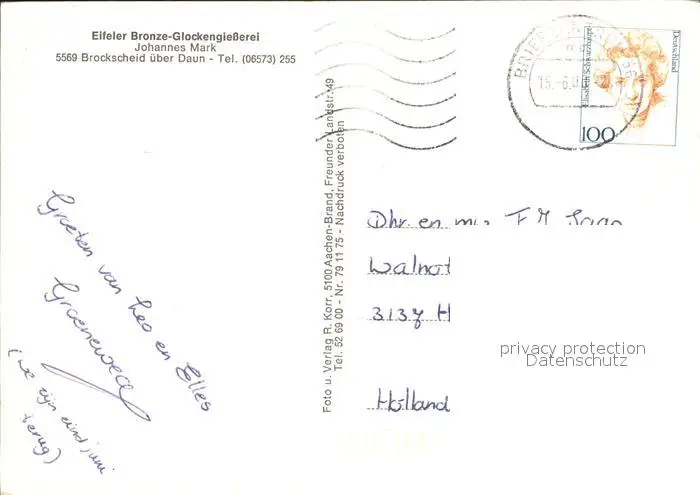 Eifeler Bronze-Glockengießerei
Johannes Mark
5569 Brockscheid über Daun - Tel. (06573) 255
Foto u. Verlag R. Korr, 5100 Aachen-Brand, Freunder Landstr. 49
Tel. 52 69 00 - Nr. 79 11 75 - Nachdruck verboten
Deutschland
Elisabeth Schwarzhaupt
100
Groeten van Leo en Elles
Groeneweg
(we zijn eind juni
terug)
Dhr. en
Walnot
3137 H
Holland
privacy protection
Datenschutz